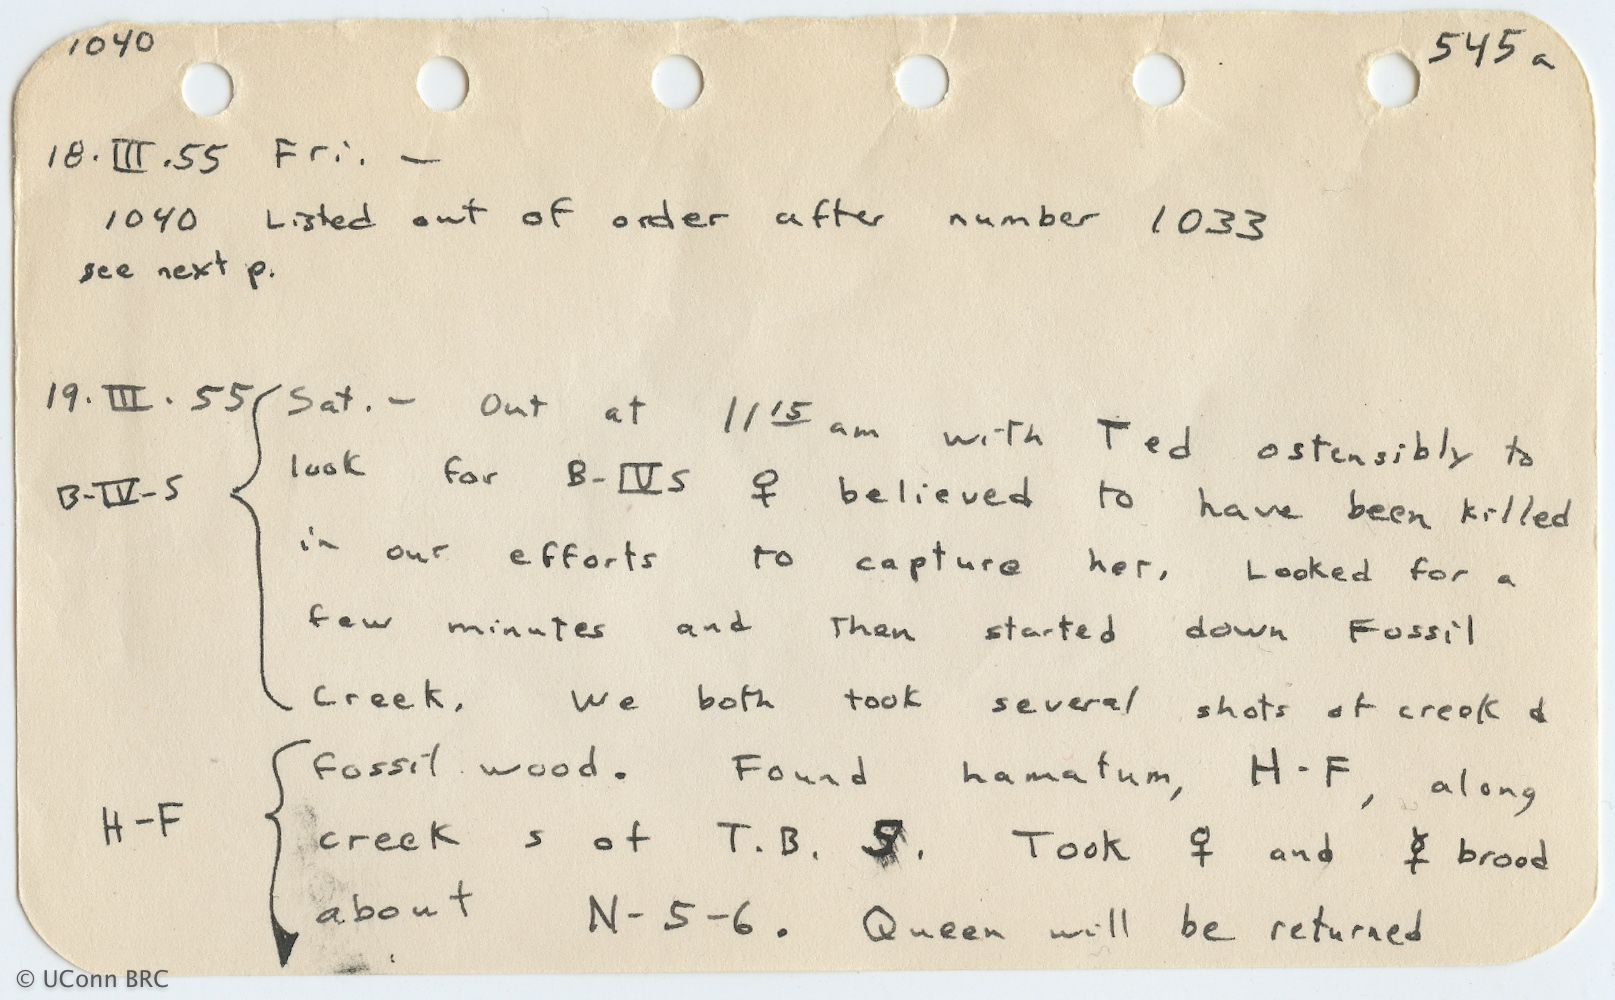 1040
545a
18.III.55 Fri. —
1040 Listed out of order after number 1033
see next p.
19.III.55 Sat. — Out at 11 15 am with Ted ostensibly to
B-IV-S look for B-IVS ♀ believed to have been killed
in our efforts to capture her, Looked for a
few minutes and then started down Fossil
Creek. We both took several shots of creek &
fossil wood. Found hamatum, H-F, along
H-F creek s of T.B. 9. Took ♀ and ☿ brood
about N-5-6. Queen will be returned
© UConn BRC